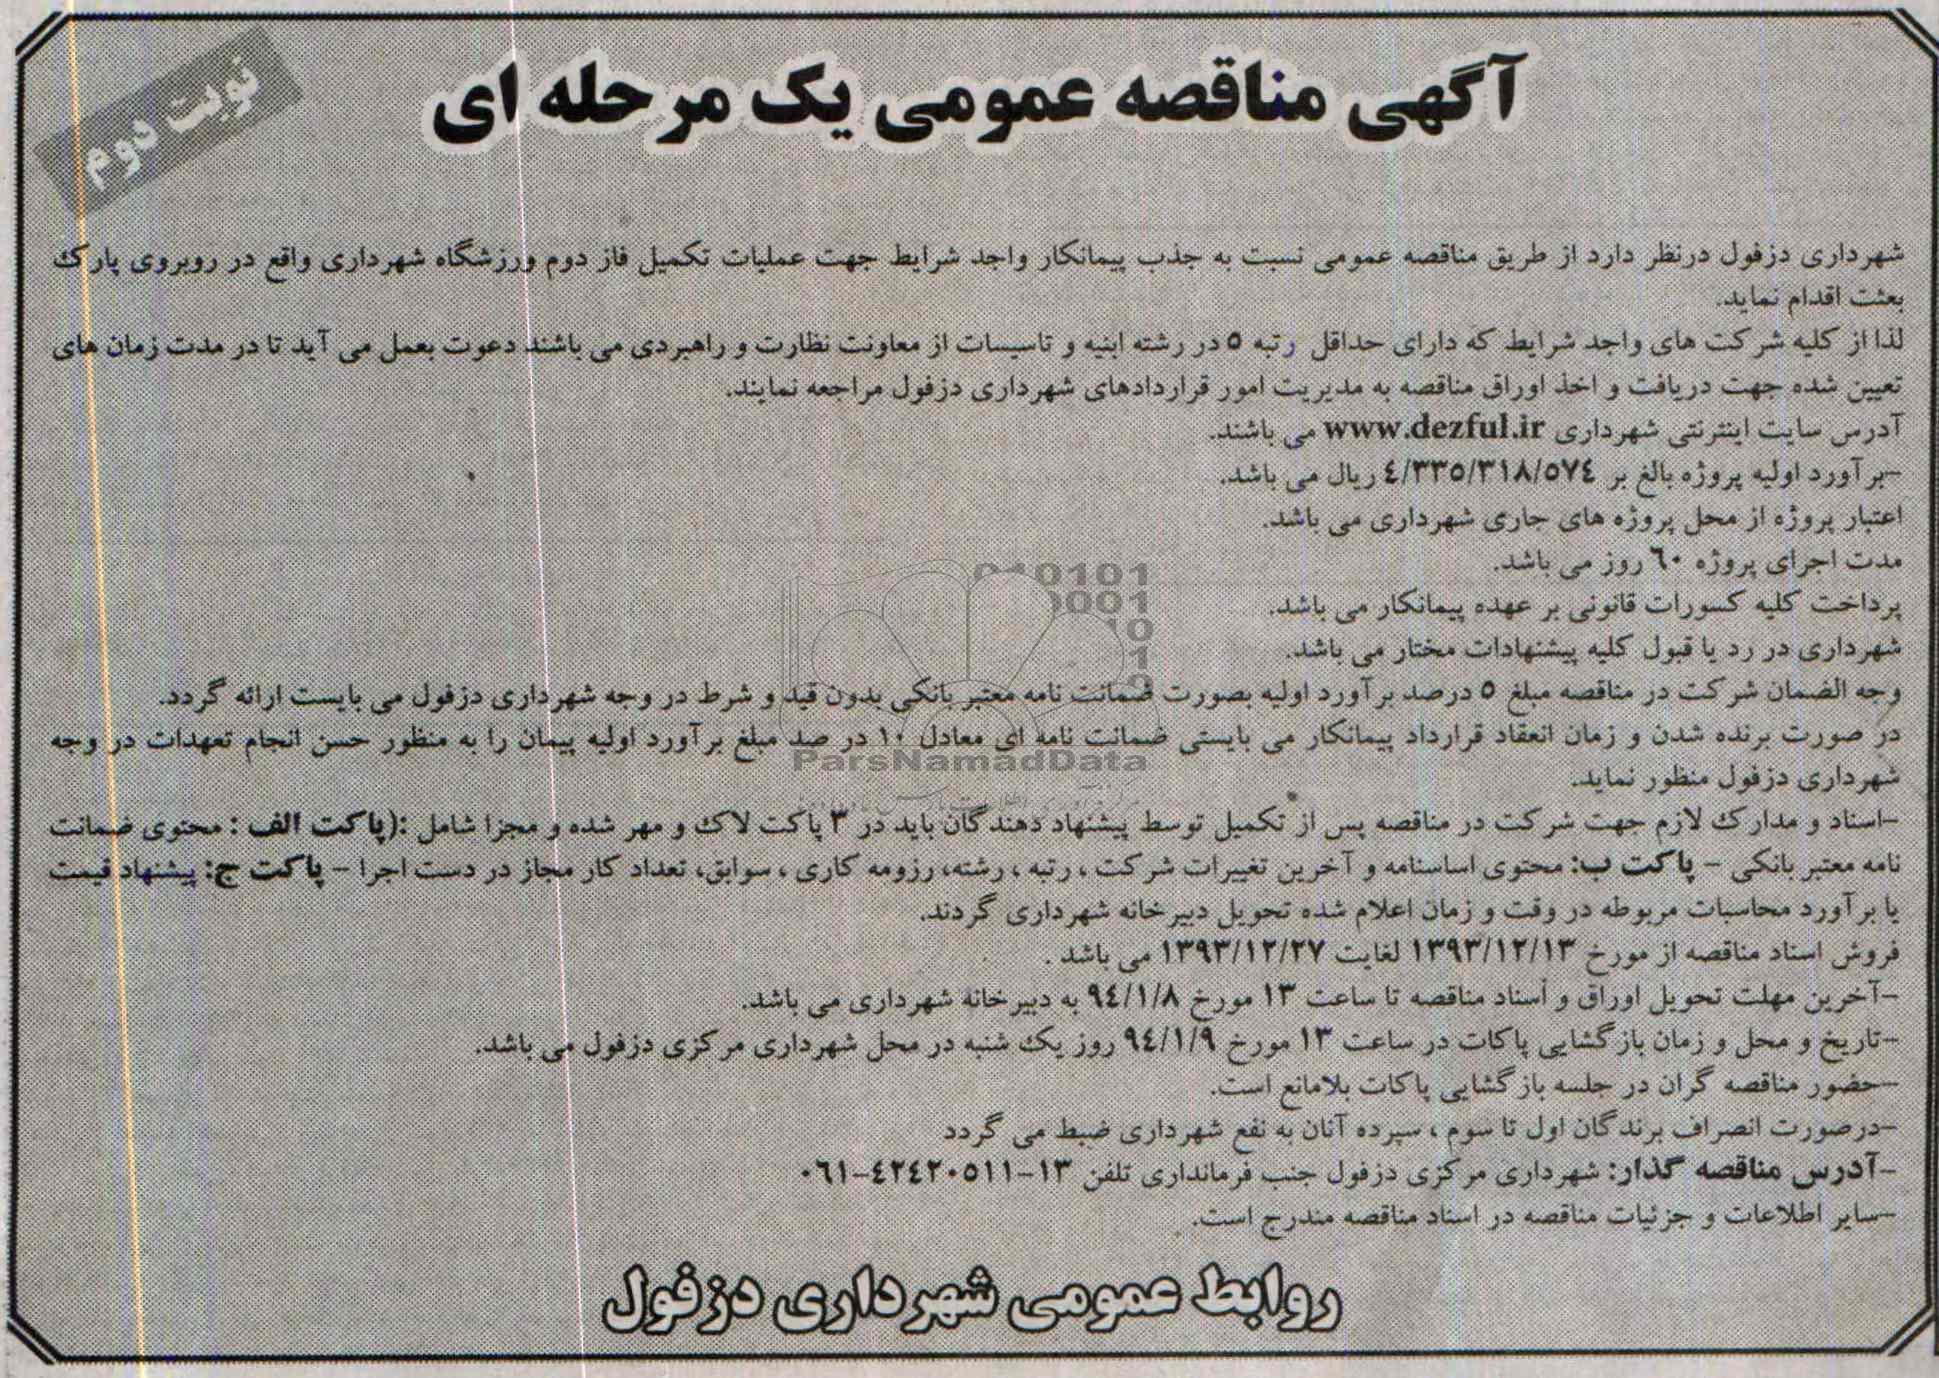 آگهی مناقصه عمومی یک مرحله ای
نوبت دوم
شهرداری دزفول درنظر دارد از طریق مناقصه عمومی نسبت به جذب پیمانکار واجد شرایط جهت عملیات تکمیل فاز دوم ورزشگاه شهرداری واقع در روبروی پارک
بعثت اقدام نماید.
لذا از کلیه شرکت های واجد شرایط که دارای حداقل رتبه ۵ در رشته ابنیه و تاسیسات از معاونت نظارت و راهبردی می باشند دعوت بعمل می آید تا در مدت زمان های
تعیین شده جهت دریافت و اخذ اوراق مناقصه به مدیریت امور قراردادهای شهرداری دزفول مراجعه نمایند.
آدرس سایت اینترنتی شهرداری www.dezful.ir می باشند.
-برآورد اولیه پروژه بالغ بر ٤/۳۳٥/۳۱۸/٥۷٤ ریال می باشد.
اعتبار پروژه از محل پروژه های جاری شهرداری می باشد.
مدت اجرای پروژه ٦۰ روز می باشد.
پرداخت کلیه کسورات قانونی بر عهده پیمانکار می باشد.
شهرداری در رد یا قبول کلیه پیشنهادات مختار می باشد.
وجه الضمان شرکت در مناقصه مبلغ ۵ درصد برآورد اولیه بصورت ضمانت نامه معتبر بانکی بدون قید و شرط در وجه شهرداری دزفول می بایست ارائه گردد.
در صورت برنده شدن و زمان انعقاد قرارداد پیمانکار می بایستی ضمانت نامه ای معادل ۱۰ در صد مبلغ برآورد اولیه پیمان را به منظور حسن انجام تعهدات در وجه
شهرداری دزفول منظور نماید.
-اسناد و مدارک لازم جهت شرکت در مناقصه پس از تکمیل توسط پیشنهاد دهندگان باید در ۳ پاکت لاک و مهر شده و مجزا شامل :(پاکت الف : محتوی ضمانت
نامه معتبر بانکی - پاکت ب: محتوی اساسنامه و آخرین تغییرات شرکت ، رتبه ، رشته، رزومه کاری ، سوابق، تعداد کار مجاز در دست اجرا - پاکت ج: پیشنهاد قیمت
یا برآورد محاسبات مربوطه در وقت و زمان اعلام شده تحویل دبیرخانه شهرداری گردند.
فروش اسناد مناقصه از مورخ ۱۳۹۳/۱۲/۱۳ لغایت ۱۳۹۳/۱۲/۲۷ می باشد .
-آخرین مهلت تحویل اوراق و أسناد مناقصه تا ساعت ۱۳ مورخ ۹٤/۱/۸ به دبیرخانه شهرداری می باشد.
-تاریخ و محل و زمان بازگشایی پاکات در ساعت ۱۳ مورخ ۹٤/۱/۹ روز یک شنبه در محل شهرداری مرکزی دزفول می باشد.
-حضور مناقصه گران در جلسه بازگشایی پاکات بلامانع است.
-درصورت انصراف برندگان اول تا سوم ، سپرده آنان به نفع شهرداری ضبط می گردد
-آدرس مناقصه گذار: شهرداری مرکزی دزفول جنب فرمانداری تلفن ۱۳-٤۲٤۲۰٥۱۱-۰٦۱
-سایر اطلاعات و جزئیات مناقصه در اسناد مناقصه مندرج است.
روابط عمومی شهرداری دزفول
ParsNamadData